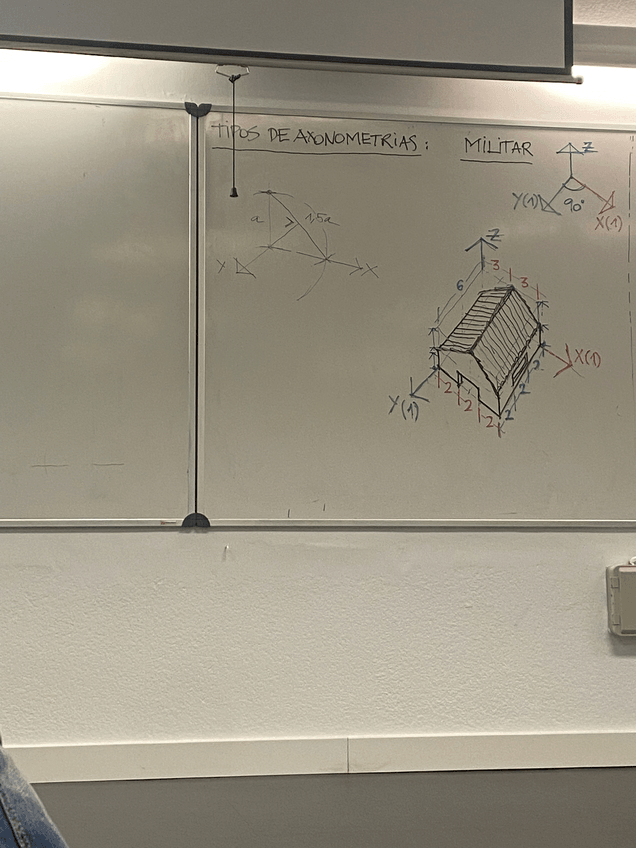 TIPOS DE AXONOMETRIAS: MILITAR
Z
Y(1)
90°
X(1)
a
1,5a
Y
X
Z
6
3
3
X(1)
Y(1)
2
2
2
2
2
2